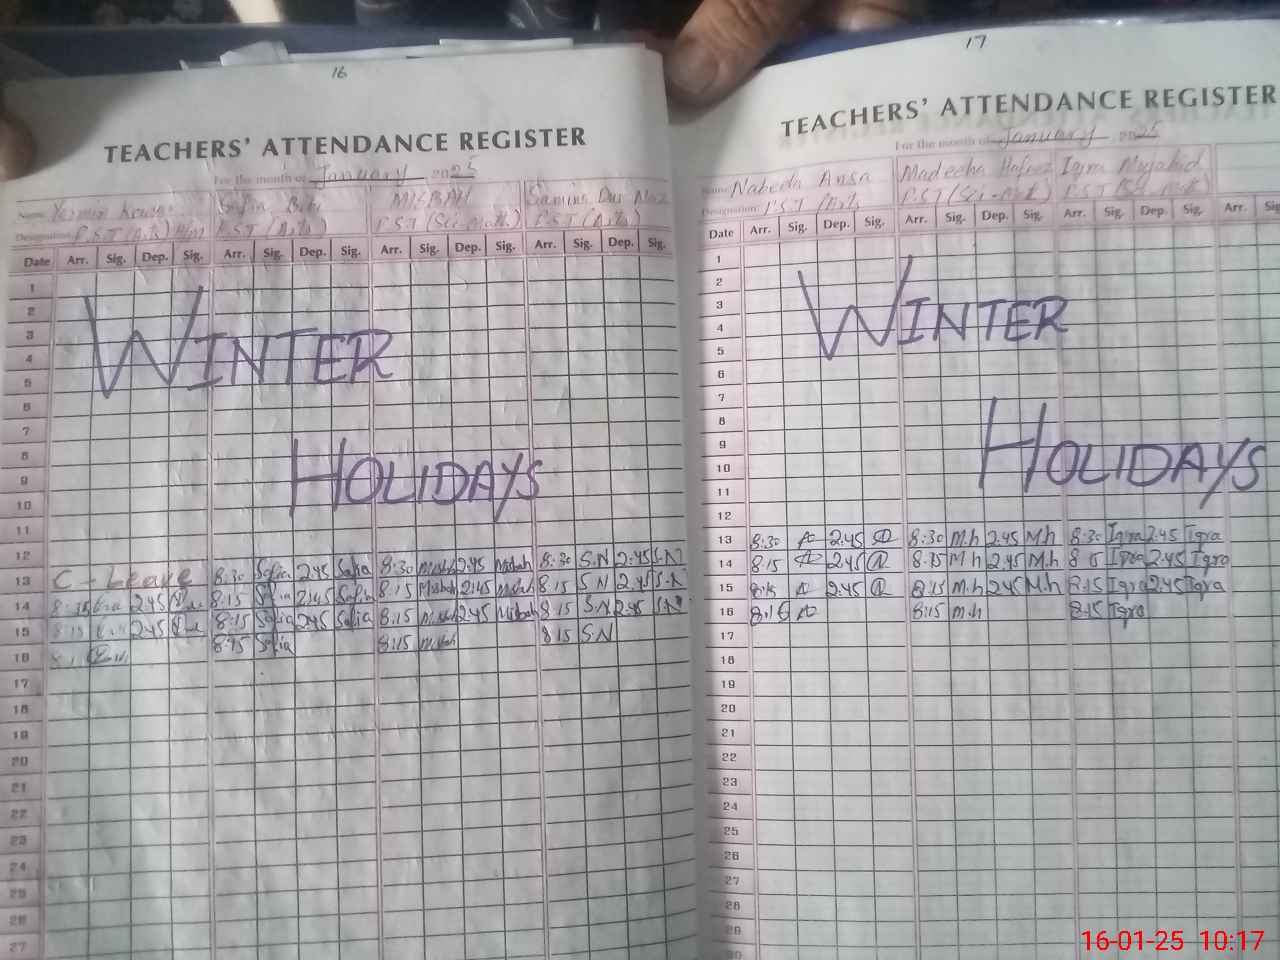 16
TEACHERS' ATTENDANCE REGISTER
For the month of January 2025
Name Yasmin Kousar Safia Bibi MISBAH Samina Dur Naz
Designation P.S.T (Arts) P.S.T (Arts) P.S.T (Sci-Math) P.S.T (Arts)
Date Arr. Sig. Dep. Sig. Arr. Sig. Dep. Sig. Arr. Sig. Dep. Sig. Arr. Sig. Dep. Sig.
1
2
3
4
5
6
7
8
9
10
11
WINTER
HOLIDAYS
12
13 C-Leave 8:30 Safia 2:45 Safia 8:30 Misbah 2:45 Misbah 8:30 S.N 2:45 S.N
14 8:15 2:45 8:15 Safia 2:45 Safia 8:15 Misbah 2:45 Misbah 8:15 S.N 2:45 S.N
15 8:15 2:45 8:15 Safia 2:45 Safia 8:15 Misbah 2:45 Misbah 8:15 S.N 2:45 S.N
16 8:15 Safia 8:15 Misbah 8:15 S.N
17
18
19
20
21
22
23
24
25
26
27
17
TEACHERS' ATTENDANCE REGISTER
For the month of January 2025
Name Nabeela Ansa Madeeha Hafeez Iqra Mujahid
Designation P.S.T (Arts) P.S.T (Sci-Math) P.S.T (Sci-Math)
Date Arr. Sig. Dep. Sig. Arr. Sig. Dep. Sig. Arr. Sig. Dep. Sig. Arr. Sig.
1
2
3
4
5
6
7
8
9
10
11
WINTER
HOLIDAYS
12
13 8:30 2:45 8:30 M.h 2:45 M.h 8:30 Iqra 2:45 Iqra
14 8:15 2:45 8:15 M.h 2:45 M.h 8:15 Iqra 2:45 Iqra
15 8:15 2:45 8:15 M.h 2:45 M.h 8:15 Iqra 2:45 Iqra
16 8:15 8:15 M.h 8:15 Iqra
17
18
19
20
21
22
23
24
25
26
27
28
29
30
16-01-25 10:17